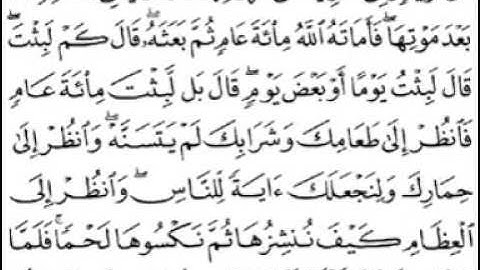 بَعْدَ مَوْتِهَا ۖ فَأَمَاتَهُ ٱللَّهُ مِا۟ئَةَ عَامٍ ثُمَّ بَعَثَهُۥ ۖ قَالَ كَمْ لَبِثْتَ ۖ
قَالَ لَبِثْتُ يَوْمًا أَوْ بَعْضَ يَوْمٍ ۖ قَالَ بَل لَّبِثْتَ مِا۟ئَةَ عَامٍ
فَٱنظُرْ إِلَىٰ طَعَامِكَ وَشَرَابِكَ لَمْ يَتَسَنَّهْ ۖ وَٱنظُرْ إِلَىٰ
حِمَارِكَ وَلِنَجْعَلَكَ ءَايَةً لِّلنَّاسِ ۖ وَٱنظُرْ إِلَى
ٱلْعِظَامِ كَيْفَ نُنشِزُهَا ثُمَّ نَكْسُوهَا لَحْمًا ۚ فَلَمَّا